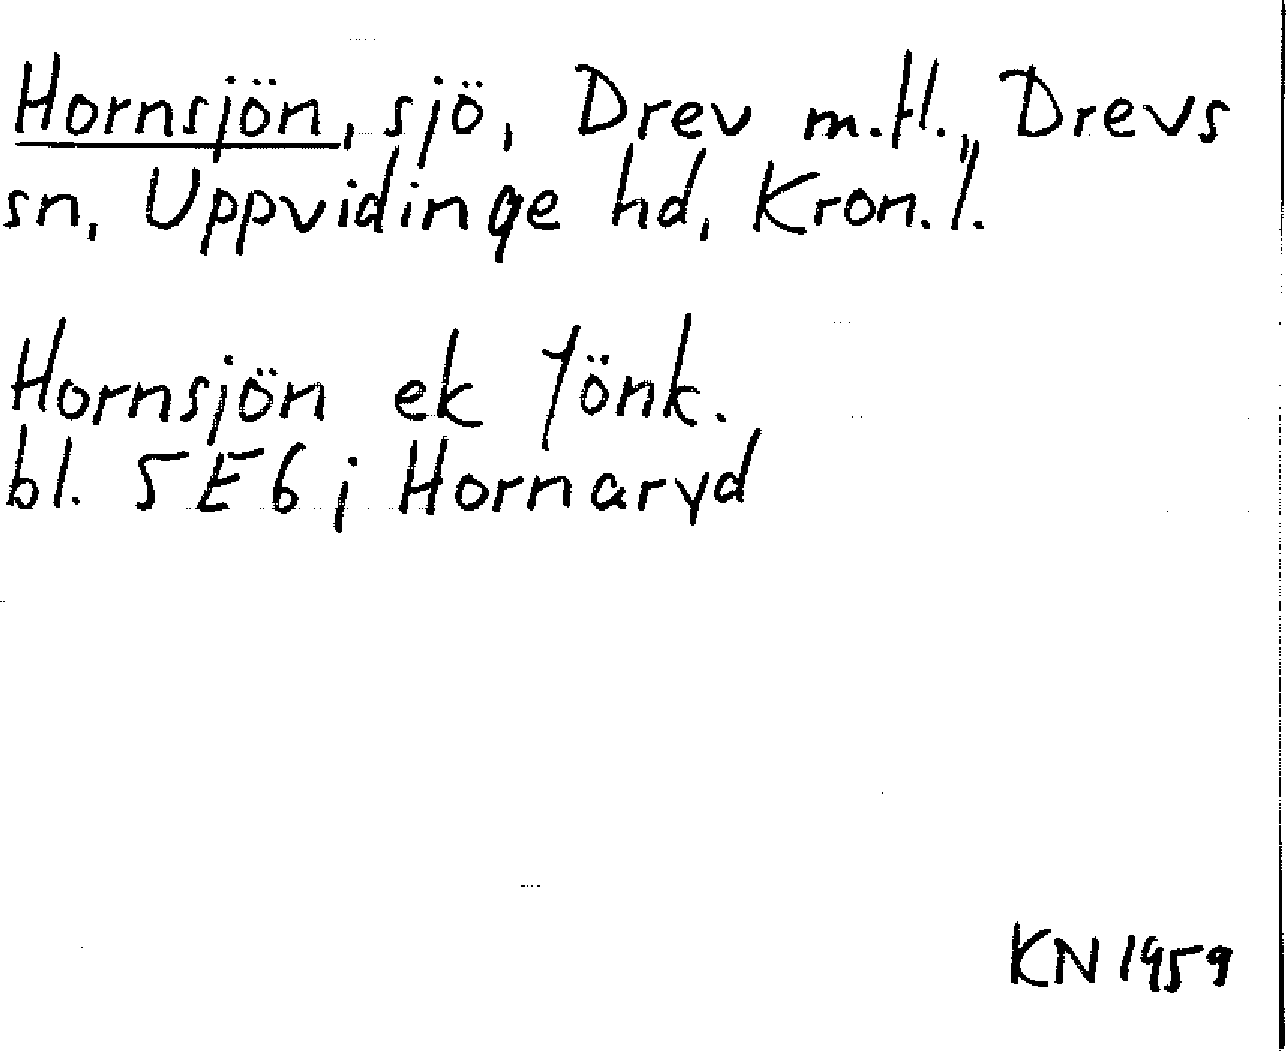 Hornsjön, sjö, Drev m.fl., Drevs
sn, Uppvidinge hd, Kron.l.
Hornsjön ek Jönk.
bl. 5E6j Hornaryd
KN 1959